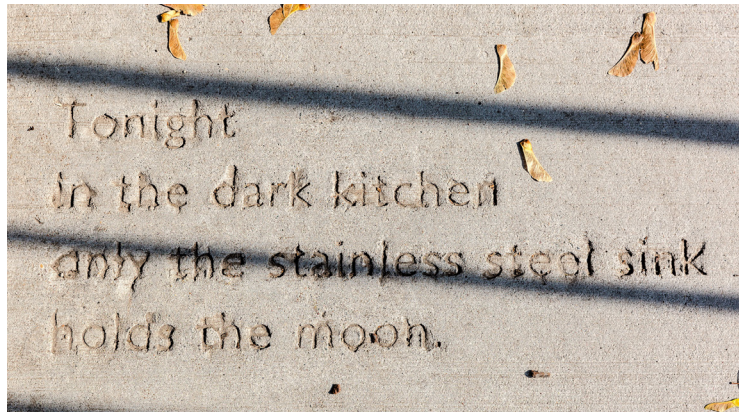 Tonight
in the dark kitchen
only the stainless steel sink
holds the moon.